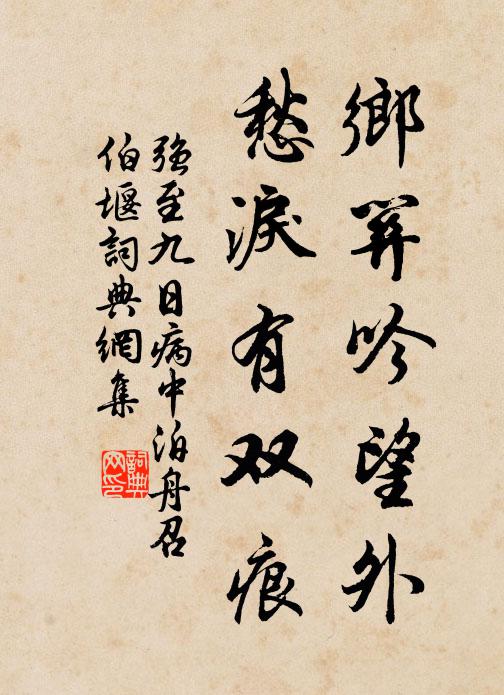 鄉異吟望外
愁淚有双痕
強至九日病中泊舟召
伯堰詞典網集
詞典
网印